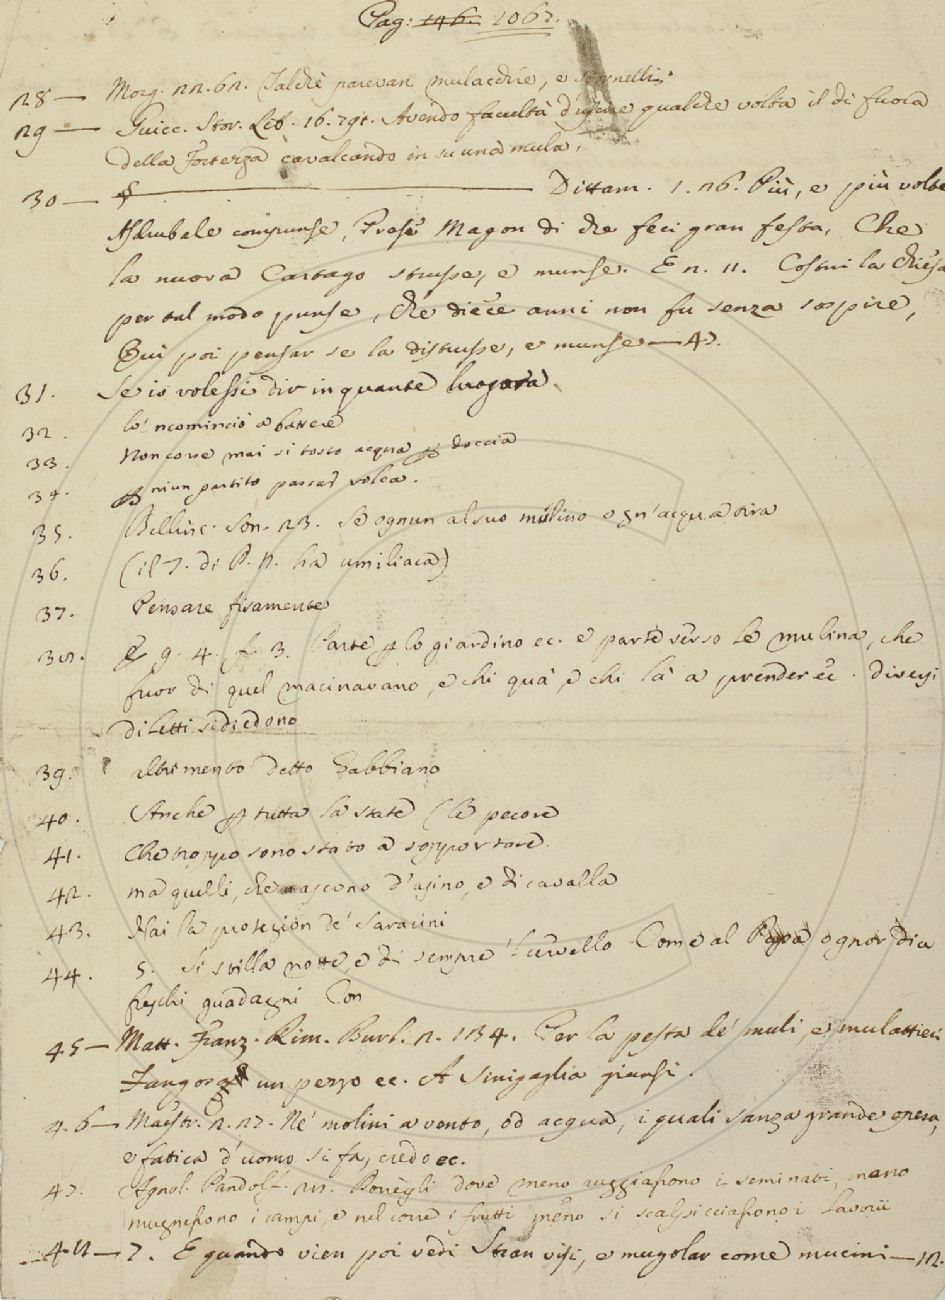 Pag: 146. 1067.
28— Morg. 22. 62. Talchè parevan mulacchie, e stornelli.
29— Guicc. Stor. Lib. 16. 791. Avendo facultà d'uscire qualche volta il di fuora
della Fortezza cavalcando in su una mula.
30— Dittam. 1. 26. Più, e più volte
Asdrubale compunse, Prese Magon di che feci gran festa, Che
la nuova Cartago strusse, e munse. E 2. 11. Costui la Chiesa
per tal modo punse, che diece anni non fu senza sospire,
Qui poi pensar se la distrusse, e munse—47.
31. Se io volessi dir in quante luogora
32. lo 'ncominciò a battere
33. Non corse mai sì tosto acqua p doccia
34. p niun partito passar volea.
35. Bellinc. son. 23. Se ognun al suo mulino ogn'acqua tira
36. (il 7. di P. N. ha umiliaca)
37. Pensare fisamente
38. E g. 4. f. 3. Parte p lo giardino ec. e parte verso le mulina, che
fuor di quel macinavano, e chi quà, e chi là a prender ec. diversi
diletti si diedono
39. altrimento detto Gabbiano
40. Anche p tutta la state (le pecore
41. Che troppo sono stato a sopportare.
42. ma quelli, che nascono d'asino, e di cavalla
43. Hai la protezion de' Saracini
44. 5. Si stilla notte, e dì sempre 'l cervello Come al Papa ognor dia
freschi guadagni Con
45— Matt. Franz. Rim. Burl. 2. 134. Per la pesta de' muli, e mulattieri
un pezzo ec. A Sinigaglia giunsi.
46— Maestr. 2. 27. Ne' molini a vento, od acqua, i quali sanza grande opera,
e fatica d'uomo si fa, credo ec.
47. Agnol. Pandolf. Porregli dove meno uggiassono i seminati, meno
mugnessono i campi, e nel corre i frutti meno si scalpicciassono i lavorii
48— 7. E quando vien poi vedi Stran visi, e mugolar come mucini—12.